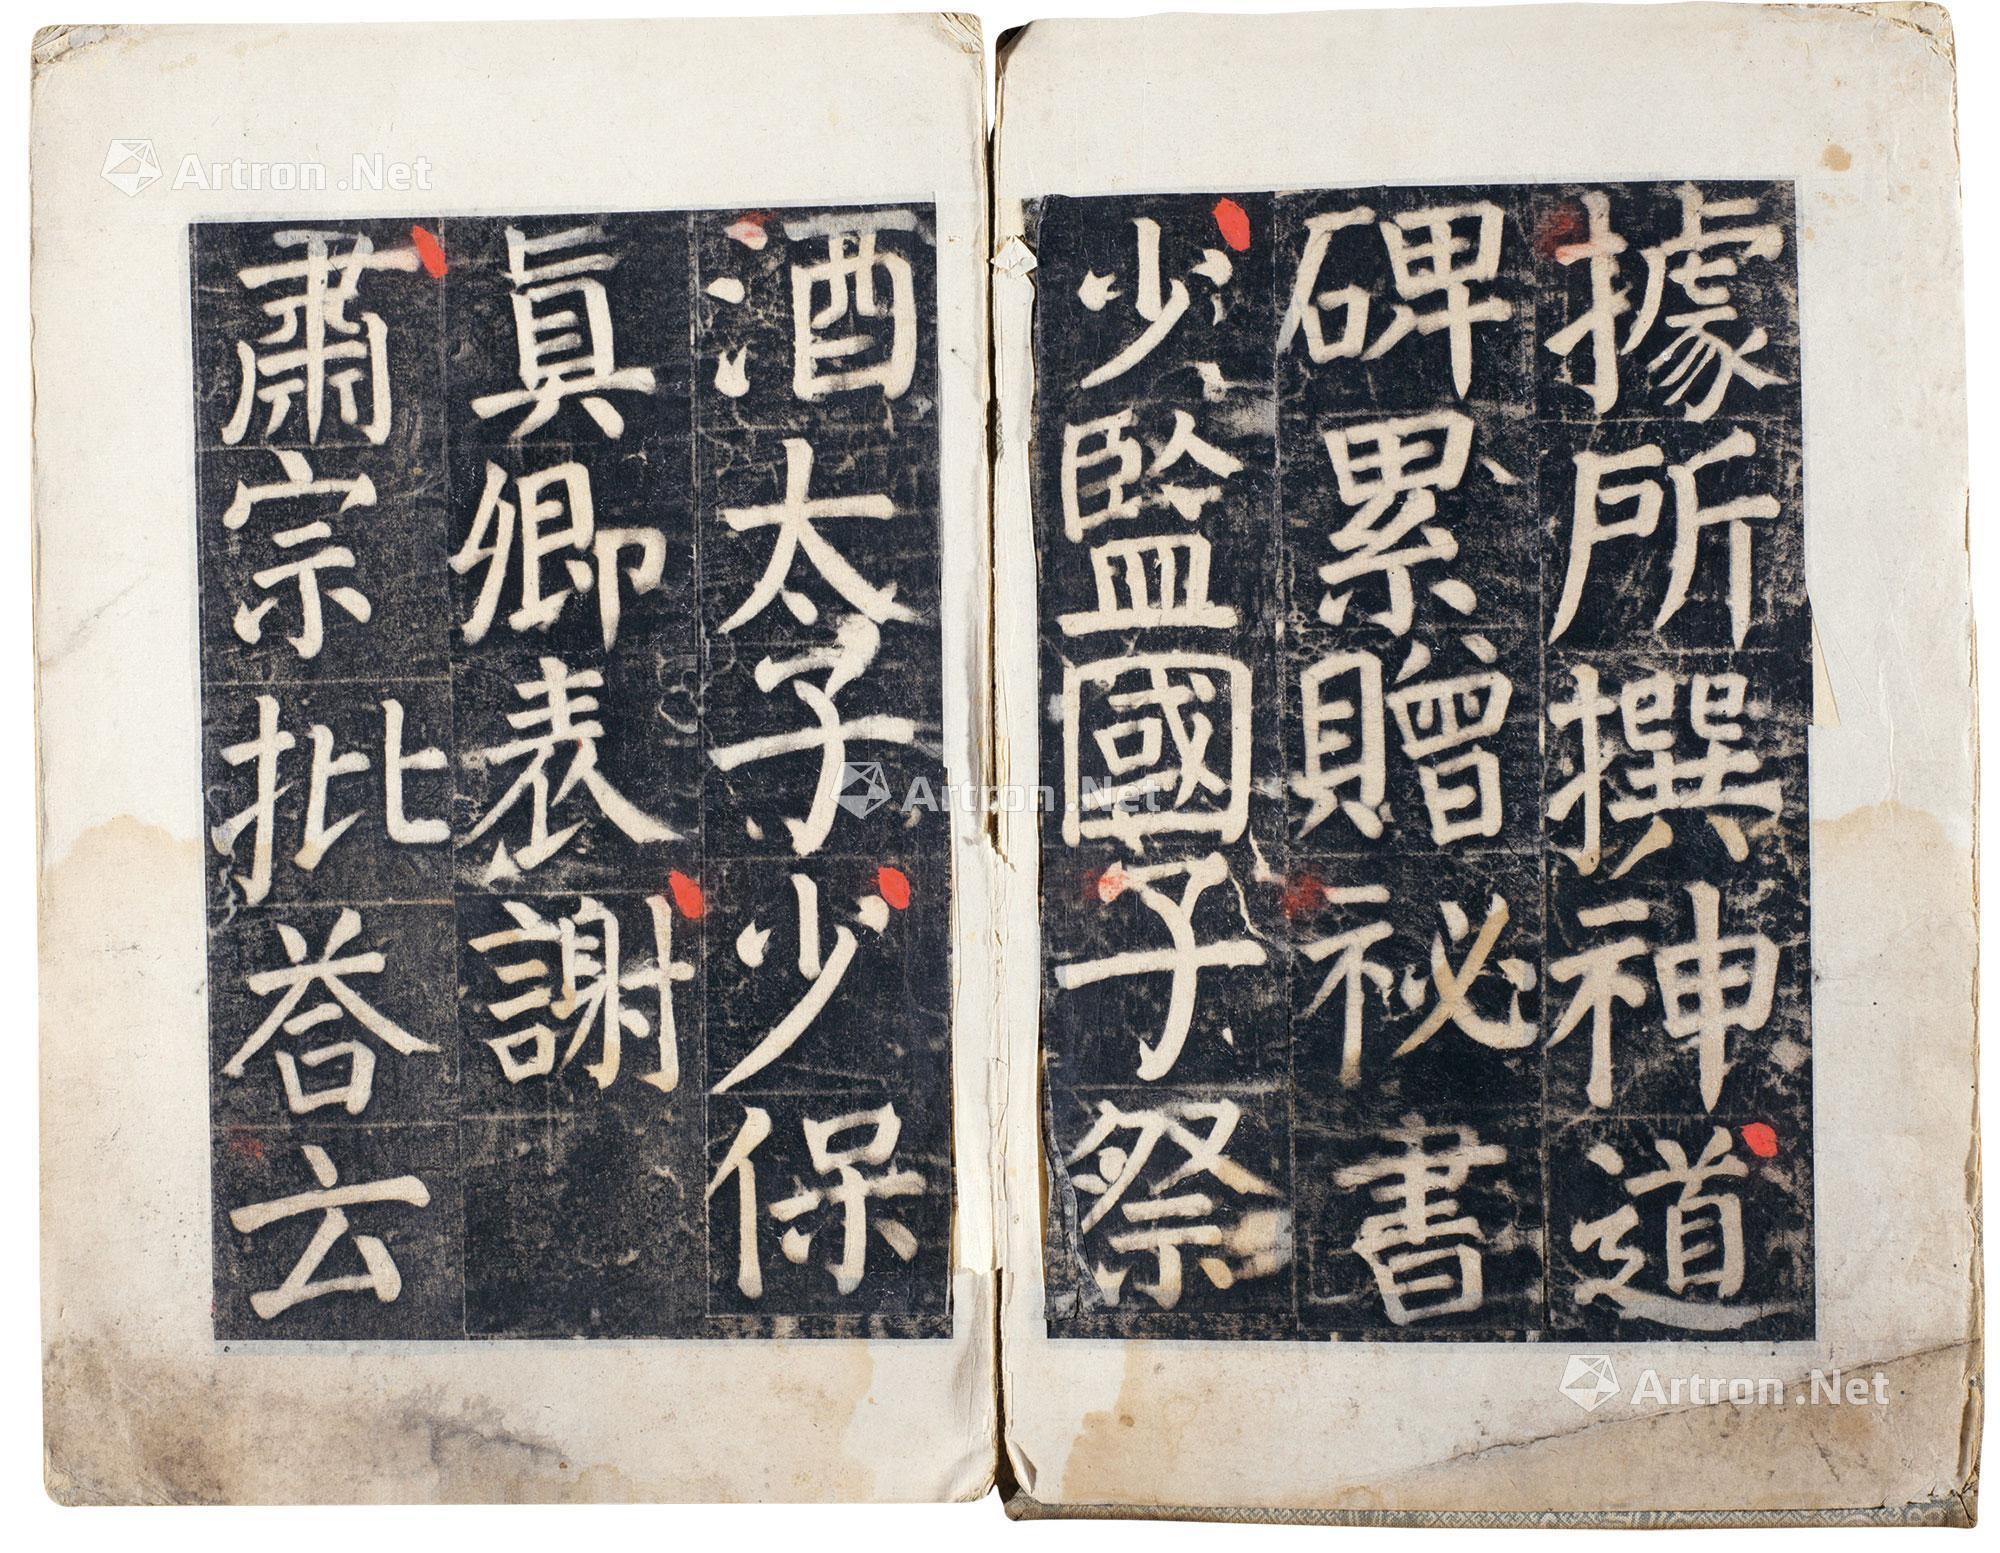 據所撰神道
碑累贈祕書
少監國子祭
酒太子少保
眞卿表謝
肅宗批荅云
Artron.Net
Artron.Net
Artron.Net